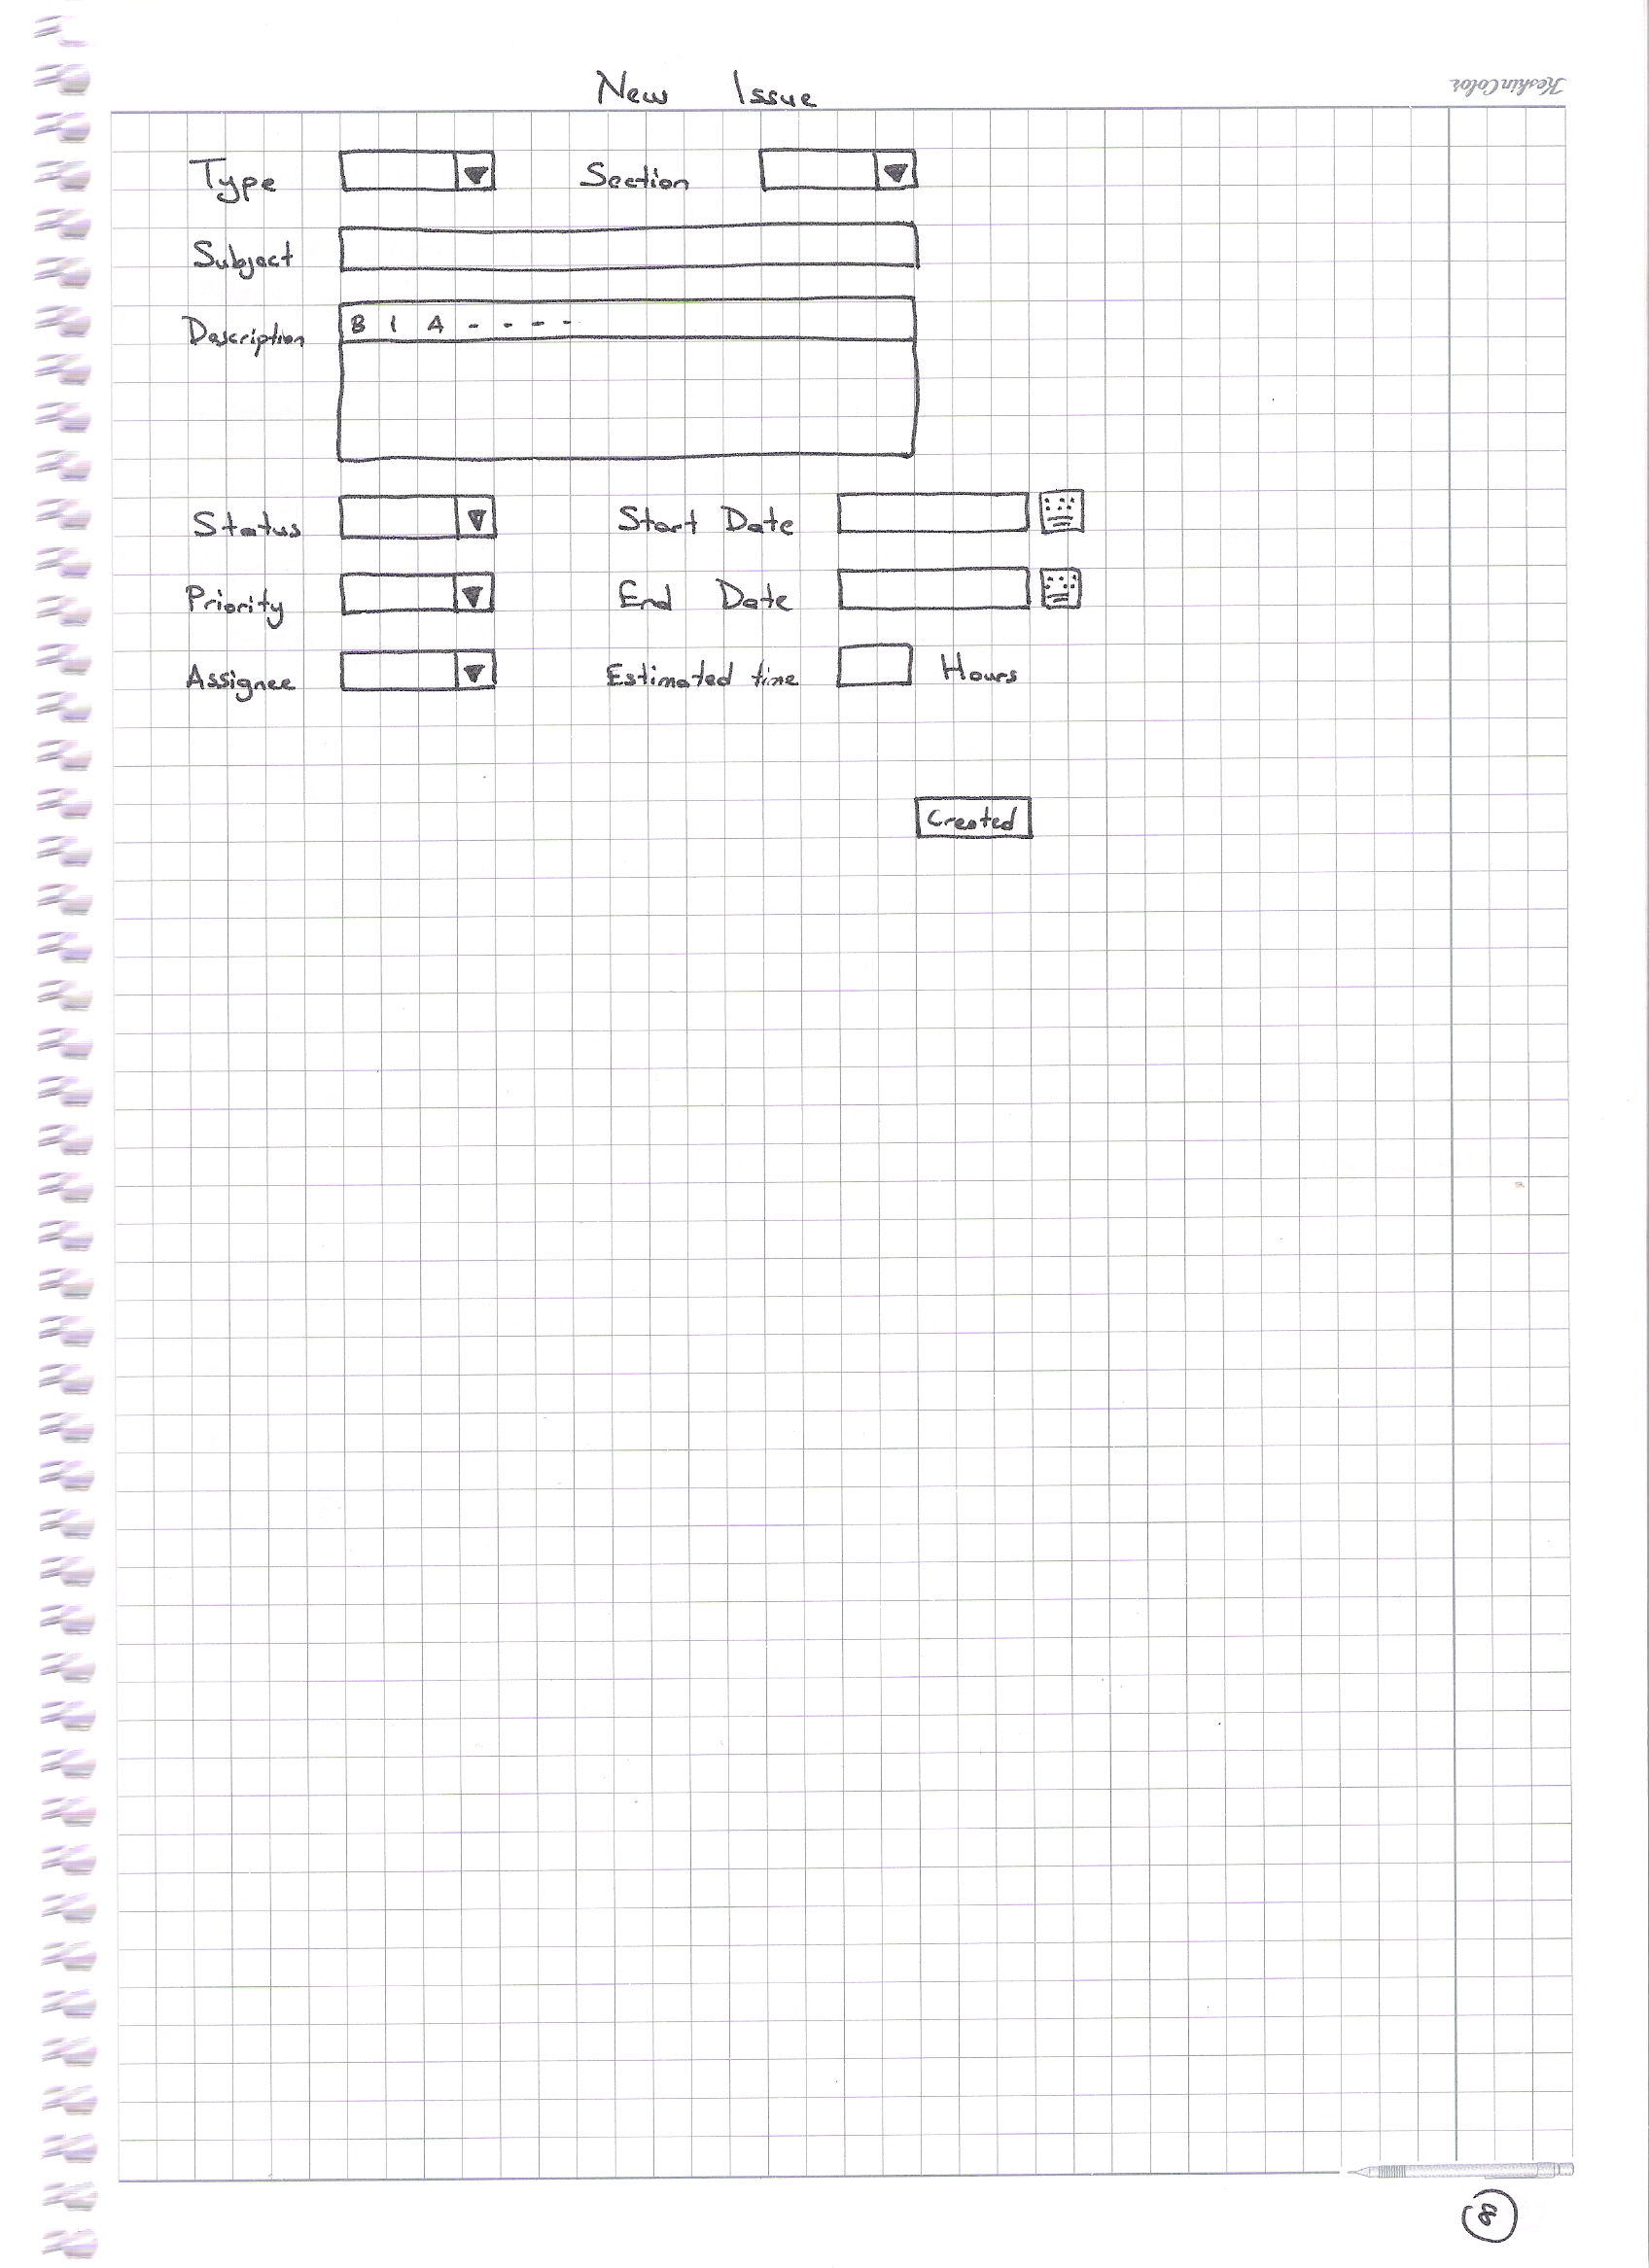 New Issue
KeskinColor
Type Section
Subject
Description B I A - - - -
Status Start Date
Priority End Date
Assignee Estimated time Hours
Created
8